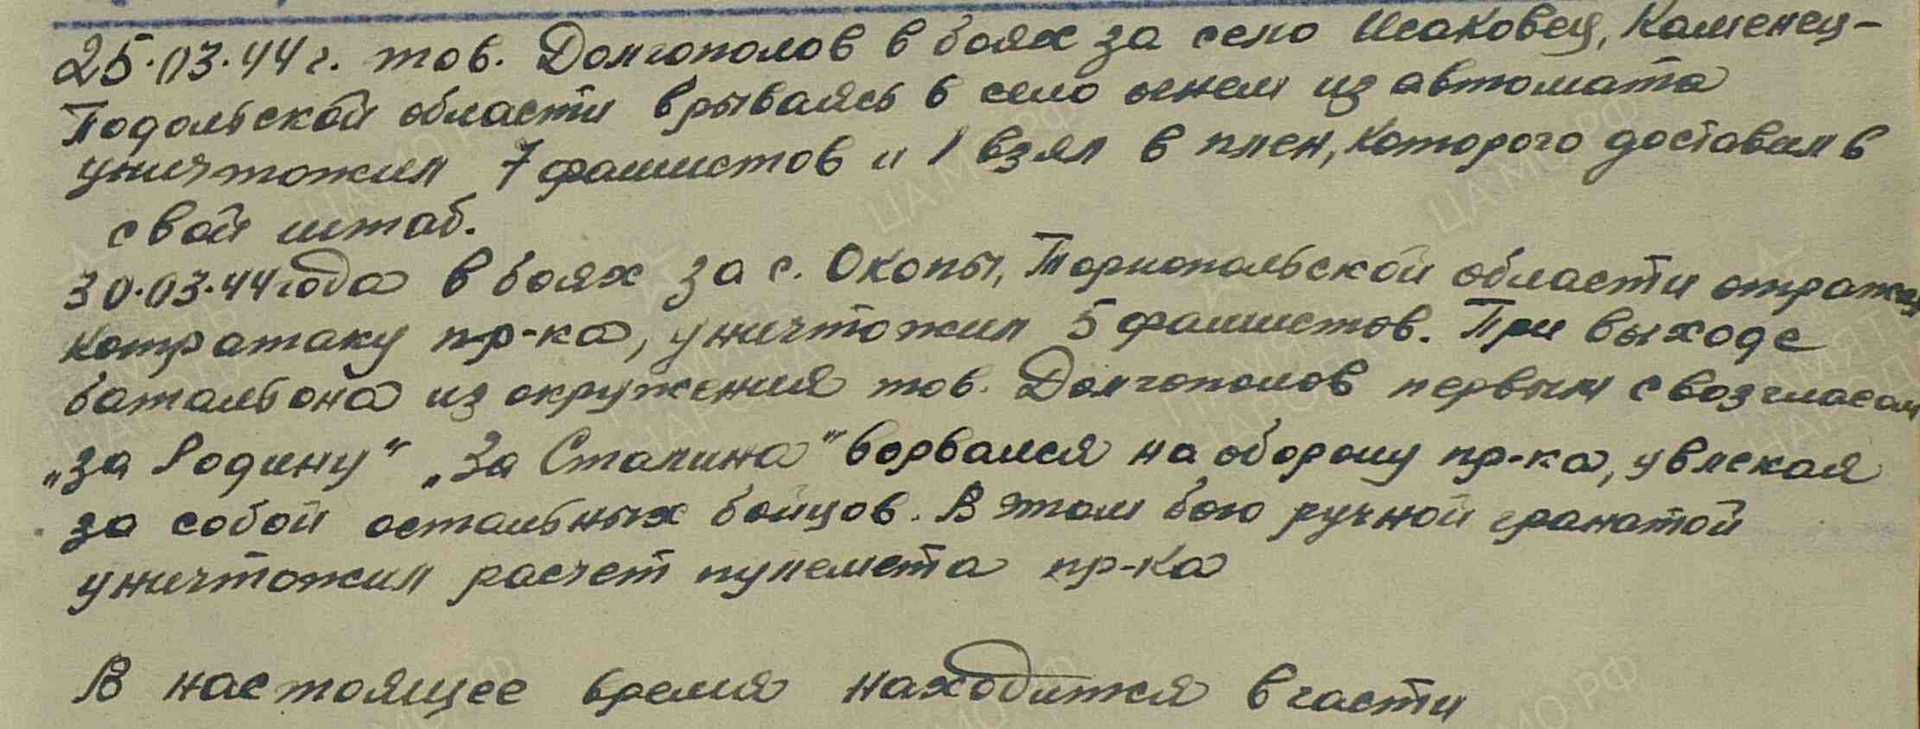 25.03.44 г. тов. Долгополов в боях за село Исаковец, Каменец-
Подольской области врываясь в село огнем из автомата
уничтожил 7 фашистов и 1 взял в плен, которого доставил в
свой штаб.
30.03.44 года в боях за с. Окопы, Торнопольской области отражая
котратаку пр-ка, уничтожил 5 фашистов. При выходе
батальона из окружения тов. Долгополов первым с возгласом
„за Родину" „За Сталина" ворвался на оборону пр-ка, увлекая
за собой остальных бойцов. В этом бою ручной гранатой
уничтожил расчет пулемета пр-ка
В настоящее время находится в части